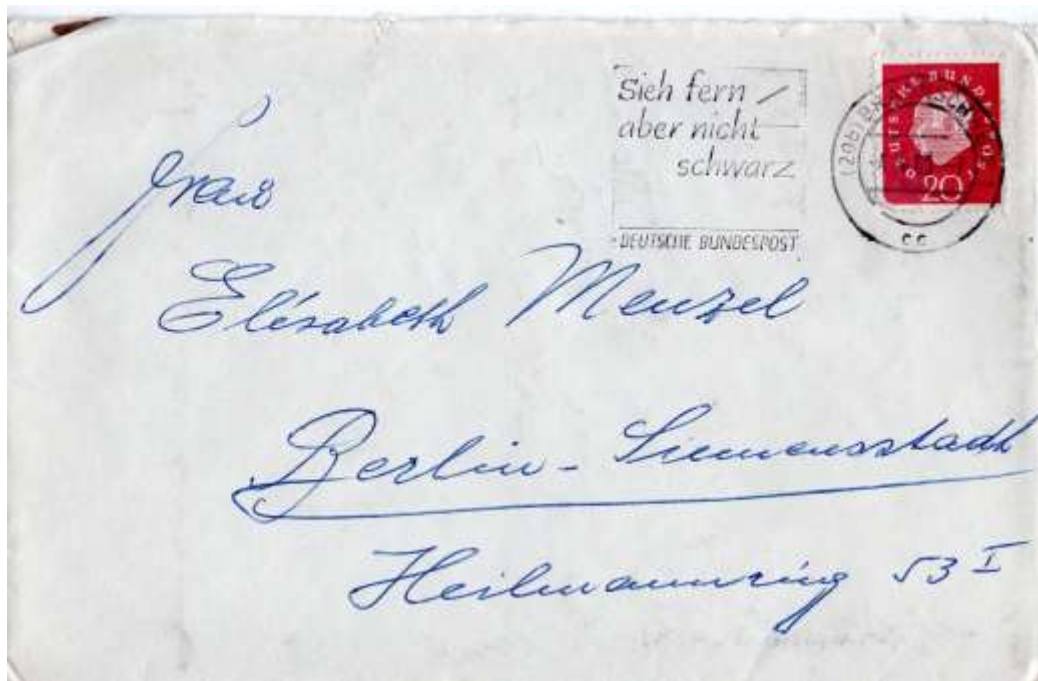 Sieh fern
aber nicht
schwarz
DEUTSCHE BUNDESPOST
DEUTSCHE BUNDESPOST
20
cc
Frau
Elisabeth Menzel
Berlin-Siemensstadt
Heilmannring 53 I